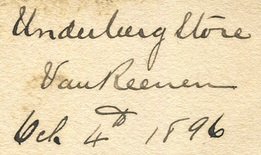 Underberg Store
Van Reenen
Oct. 4th 1896